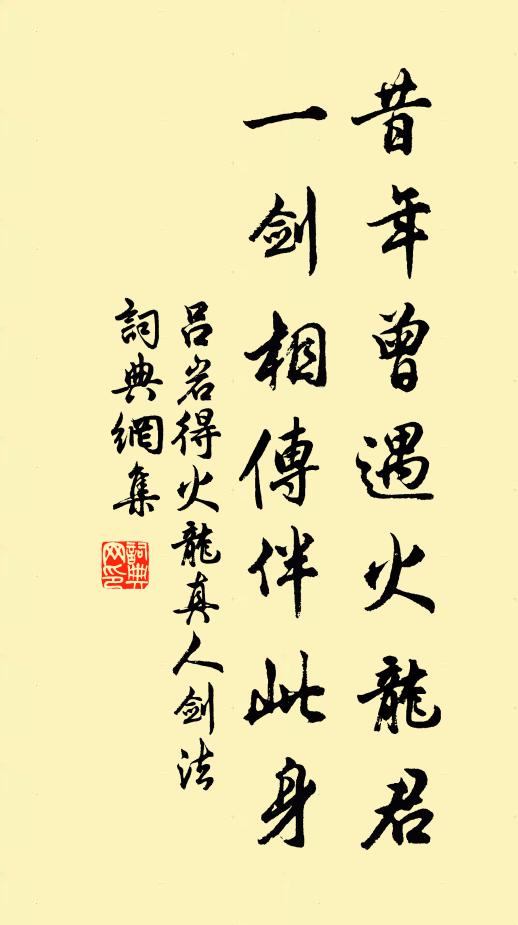 昔年曾遇火龍君
一剑相傳伴此身
吕岩得火龍真人剑法
詞典網集
詞典网印